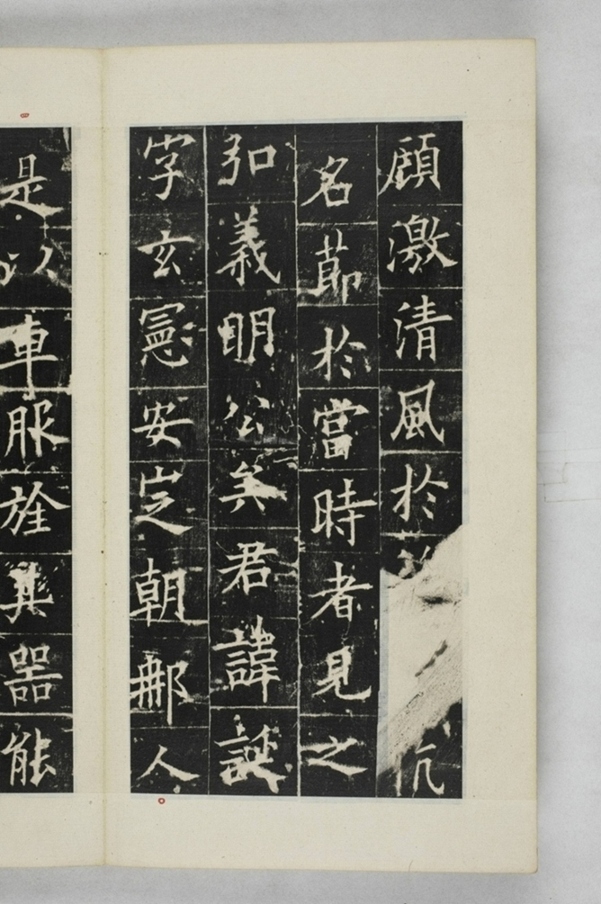 顧激清風於亢
名莭於當時者見之
弘義明公矣君諱誕
字玄憲安㝎朝𨙻人
是以車服旌其器能